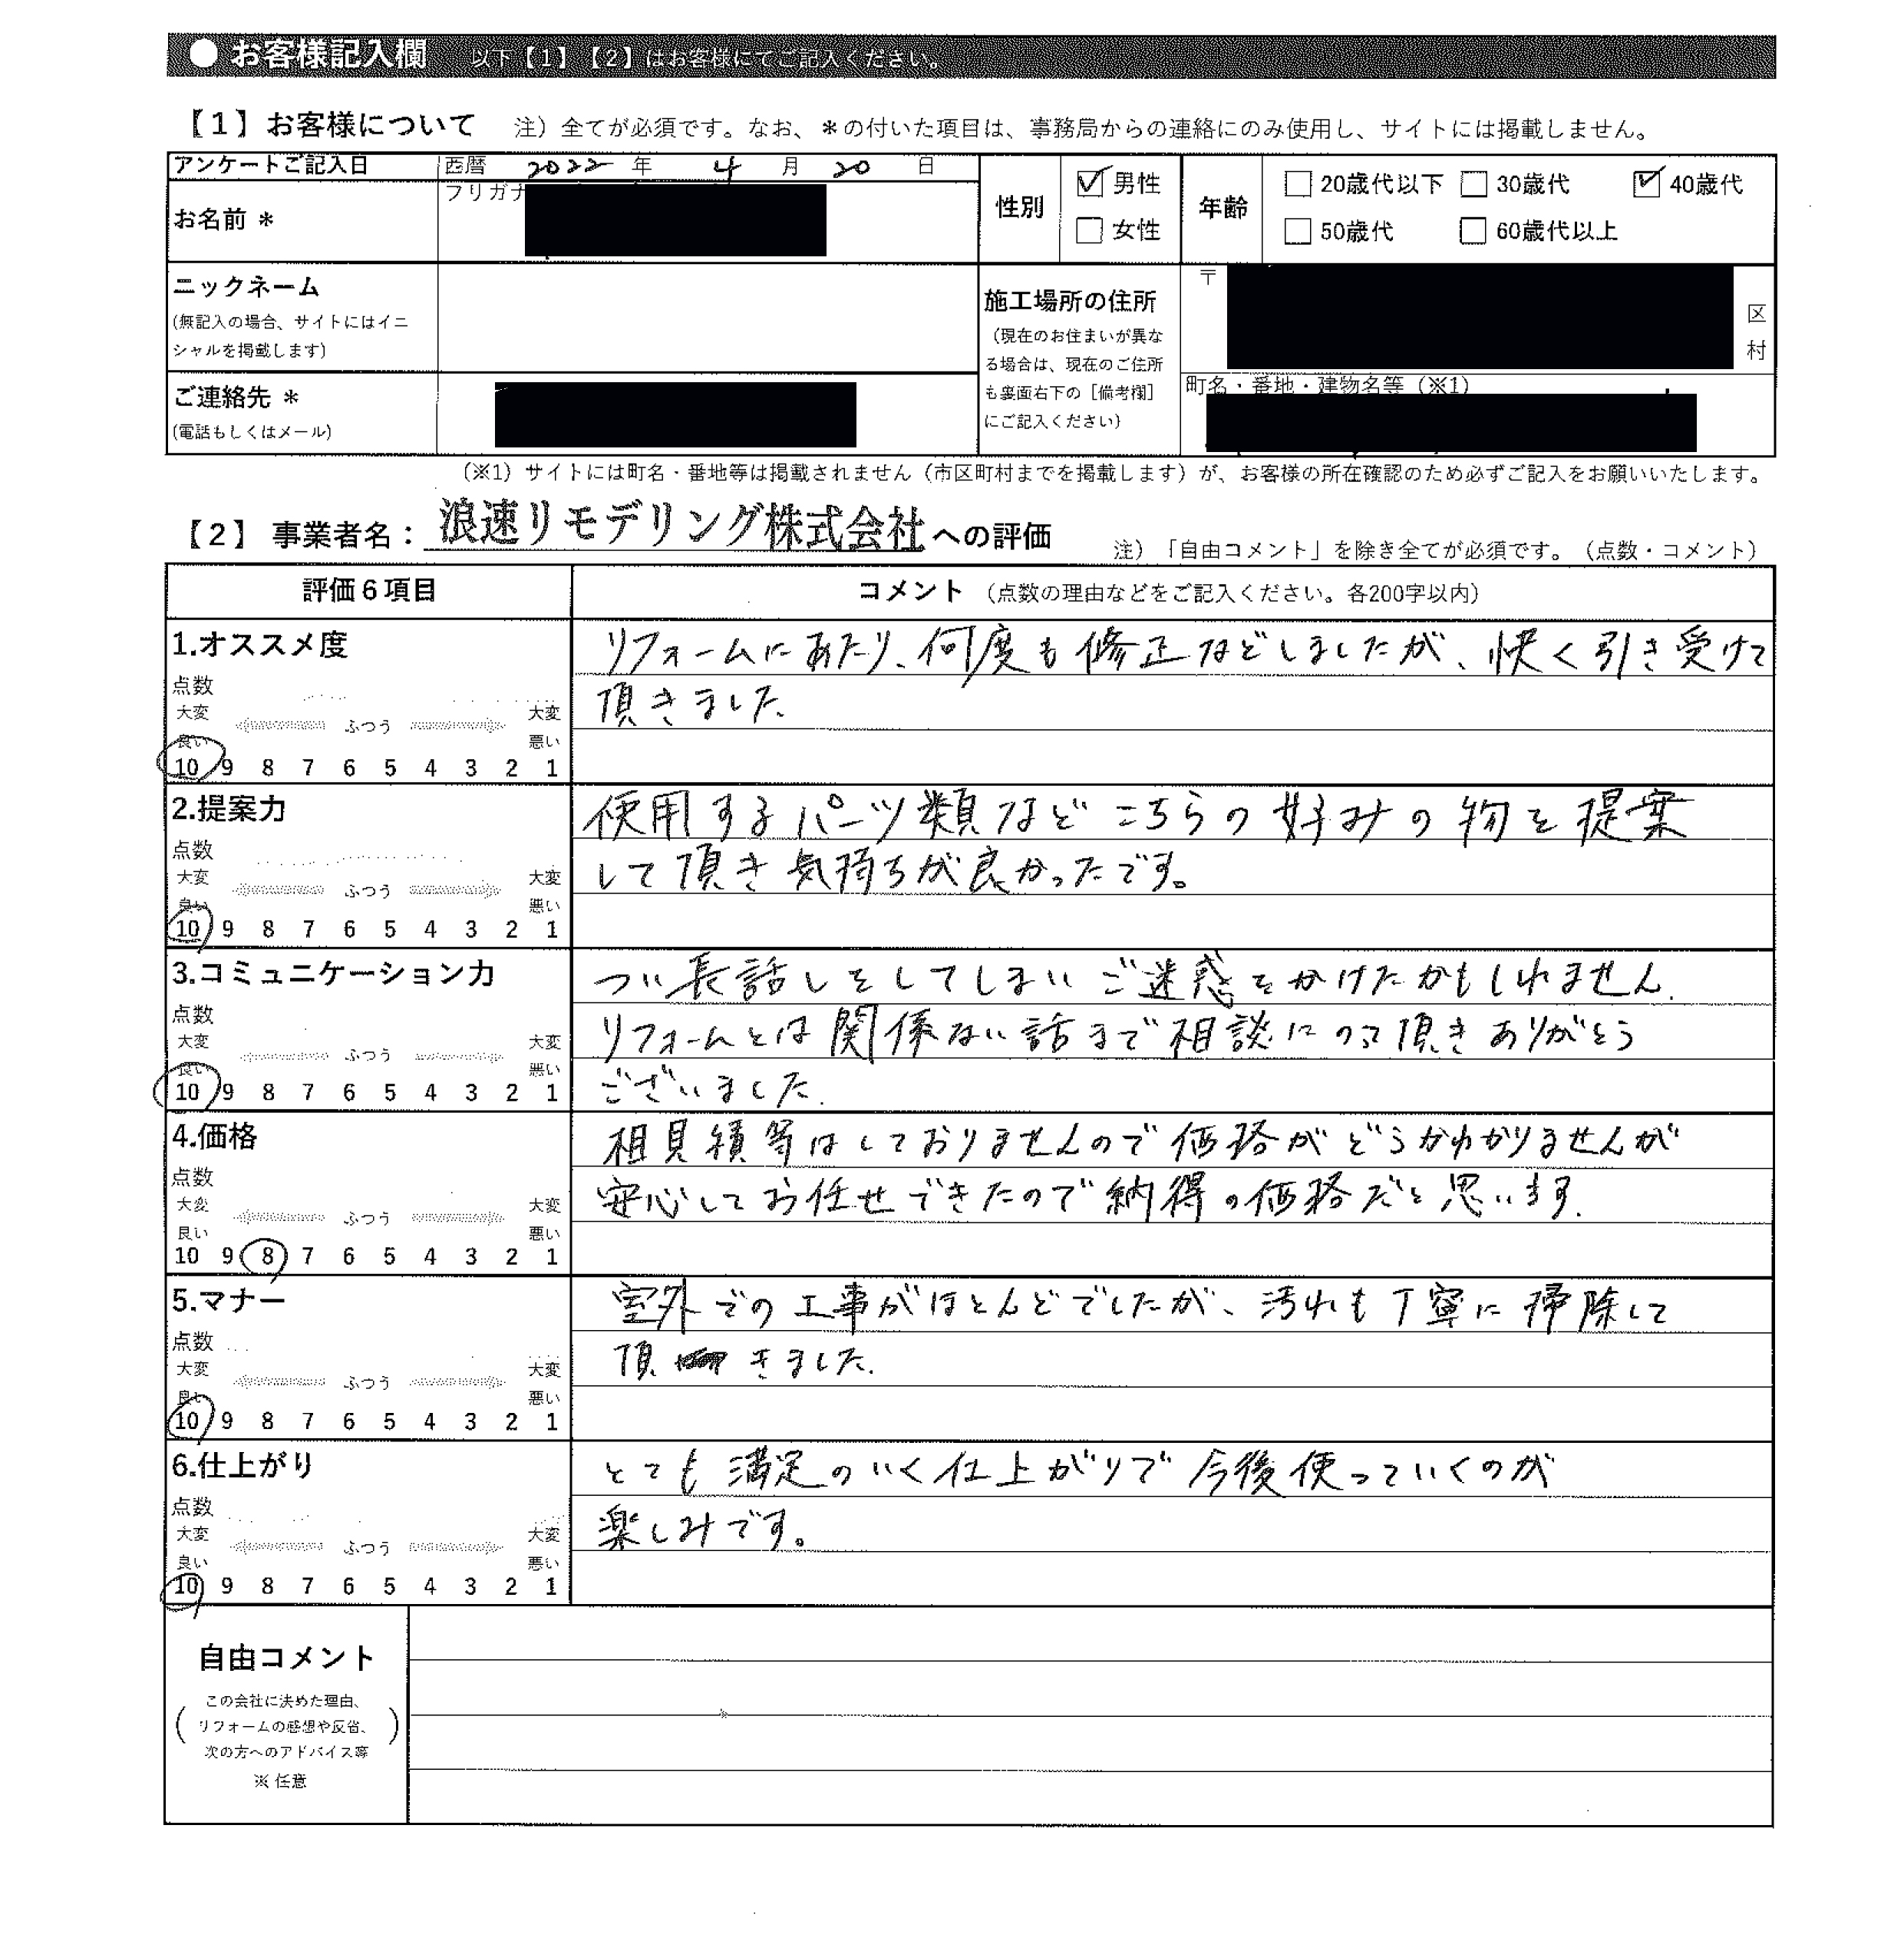 ● お客様記入欄 以下【1】【2】はお客様にてご記入ください。
【1】お客様について 注）全てが必須です。なお、＊の付いた項目は、事務局からの連絡にのみ使用し、サイトには掲載しません。
アンケートご記入日 西暦 2022 年 4 月 20 日
お名前 ＊ フリガナ
性別 ☑男性 □女性
年齢 □20歳代以下 □30歳代 ☑40歳代
□50歳代 □60歳代以上
ニックネーム
(無記入の場合、サイトにはイニ
シャルを掲載します)
ご連絡先 ＊
(電話もしくはメール)
施工場所の住所
（現在のお住まいが異な
る場合は、現在のご住所
も裏面右下の［備考欄］
にご記入ください）
〒
区
村
町名・番地・建物名等（※1）
（※1）サイトには町名・番地等は掲載されません（市区町村までを掲載します）が、お客様の所在確認のため必ずご記入をお願いいたします。
【2】 事業者名： 浪速リモデリング株式会社 への評価 注）「自由コメント」を除き全てが必須です。（点数・コメント）
評価６項目 コメント （点数の理由などをご記入ください。各200字以内）
1.オススメ度
点数
大変 ふつう 大変
良い 悪い
10 9 8 7 6 5 4 3 2 1
リフォームにあたり、何度も修正などしましたが、快く引き受けて
頂きました
2.提案力
点数
大変 ふつう 大変
良い 悪い
10 9 8 7 6 5 4 3 2 1
使用するパーツ類などこちらの好みの物を提案
して頂き気持ちが良かったです。
3.コミュニケーション力
点数
大変 ふつう 大変
良い 悪い
10 9 8 7 6 5 4 3 2 1
つい長話しをしてしまいご迷惑をかけたかもしれません.
リフォームとは関係ない話まで相談にのって頂きありがとう
ございました.
4.価格
点数
大変 ふつう 大変
良い 悪い
10 9 8 7 6 5 4 3 2 1
相見積等はしておりませんので価格がどうかわかりませんが
安心してお任せできたので納得の価格だと思います.
5.マナー
点数
大変 ふつう 大変
良い 悪い
10 9 8 7 6 5 4 3 2 1
室外での工事がほとんどでしたが、汚れも丁寧に掃除して
頂きました.
6.仕上がり
点数
大変 ふつう 大変
良い 悪い
10 9 8 7 6 5 4 3 2 1
とても満足のいく仕上がりで今後使っていくのが
楽しみです。
自由コメント
この会社に決めた理由、
リフォームの感想や反省、
次の方へのアドバイス等
※ 任意